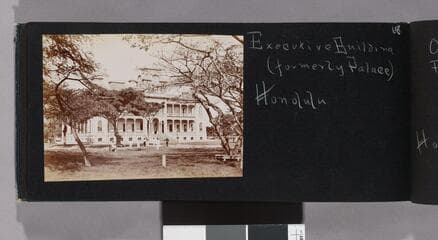 48
Executive Building
(formerly Palace)
Honolulu
Ho